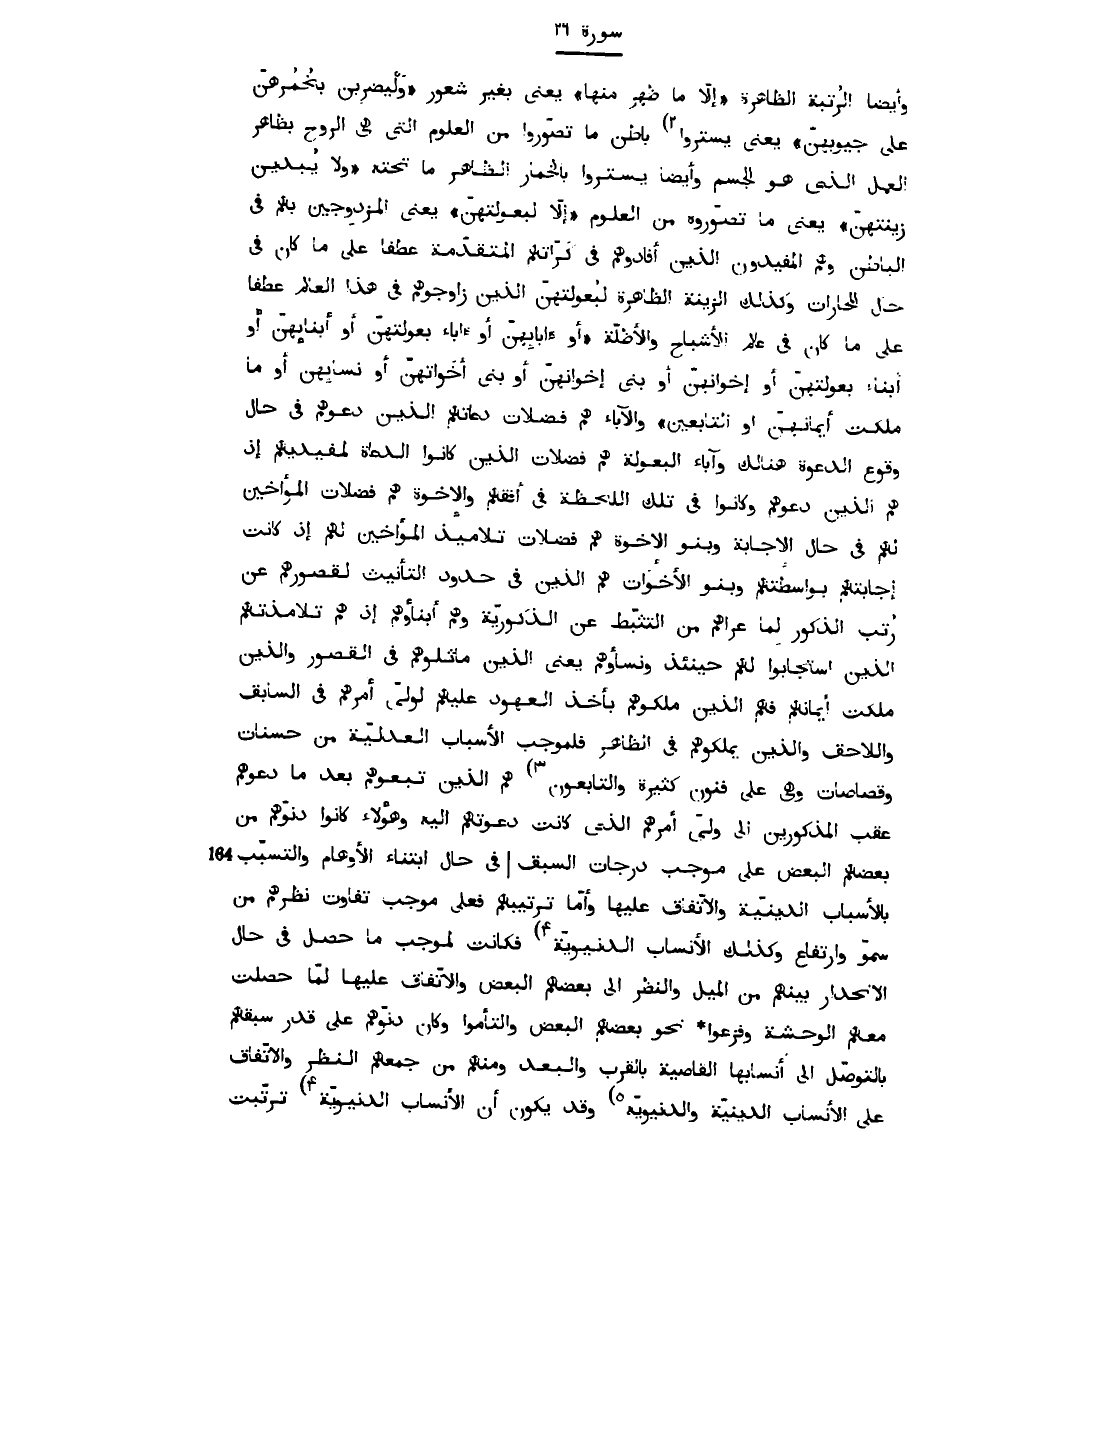 سورة ٢٦
وأيضا الرُتبة الظاهرة «إلّا ما ظهر منها» يعنى بغير شعور «وَلْيضربن بخُمُرهنّ
على جيوبهنّ» يعنى يستروا٢) باطن ما تصوّروا من العلوم التى هى الروح بظاهر
العمل الذى هو الجسم وأيضا يستروا بالخمار الظاهر ما تحته «ولا يُبدين
زينتهنّ» يعنى ما تصوّروه من العلوم «إلّا لبعولتهنّ» يعنى المزدوجين بهم فى
الباطن وهم المفيدون الذين أفادوهم فى كرّاتهم المتقدّمة عطفا على ما كان فى
حال المحارات وكذلك الزينة الظاهرة لبُعولتهنّ الذين زاوجوهم فى هذا العالم عطفا
على ما كان فى عالم الأشباح والأظلّة «أو ءابايِهنّ أو ءاباء بعولتهنّ أو أبنايِهنّ أو
أبناء بعولتهنّ أو إخوانهنّ أو بنى إخوانهنّ أو بنى أخَواتهنّ أو نسايِهن أو ما
ملكت أيمانهنّ او التابعين» والآباء هم فضلات دعاتهم الذين دعوهم فى حال
وقوع الدعوة هنالك وآباء البعولة هم فضلات الذين كانوا الدعاة لمفيديهم إذ
هم الذين دعوهم وكانوا فى تلك اللحظة فى أفقهم والإخوة هم فضلات المؤاخين
لهم فى حال الاجابة وبنو الاخوة هم فضلات تلاميذ المؤاخين لهم إذ كانت
إجابتهم بواسطتهم وبنو الأخَوات هم الذين فى حدود التأنيث لقصورهم عن
رُتب الذكور لما عراهم من التثبّط عن الذكوريّة وهم أبنأوهم إذ هم تلامذتهم
الذين استجابوا لهم حينئذ ونسأوهم يعنى الذين ماثلوهم فى القصور والذين
ملكت أيمانهم فهم الذين ملكوهم بأخذ العهود عليهم لولىّ أمرهم فى السابق
واللاحق والذين يملكوهم فى الظاهر فلموجب الأسباب العدليّة من حسنات
وقصاصات وهى على فنون كثيرة والتابعون٣) هم الذين تبعوهم بعد ما دعوهم
عقب المذكورين الى ولىّ أمرهم الذى كانت دعوتهم اليه وهؤلاء كانوا دنوّهم من
بعضهم البعض على موجب درجات السبق | فى حال ابتناء الأوهام والتسبّب 164
بالأسباب الدينيّة والاتّفاق عليها وأمّا ترتيبهم فعلى موجب تفاوت نظرهم من
سموّ وارتفاع وكذلك الأنساب الدنيويّة۴) فكانت لموجب ما حصل فى حال
الانحدار بينهم من الميل والنظر الى بعضهم البعض والاتّفاق عليها لمّا حصلت
معهم الوحشة وفزعوا* نحو بعضهم البعض والتأموا وكان دنوّهم على قدر سبقهم
بالتوصّل الى أنسابها القاصية بالقرب والبعد ومنهم من جمعهم النظر والاتّفاق
على الأنساب الدينيّة والدنيويّة٥) وقد يكون أن الأنساب الدنيويّة۴) ترتّبت